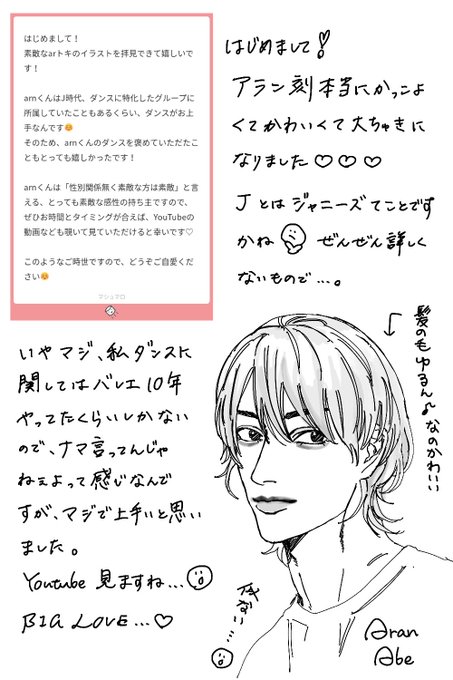 はじめまして！
素敵なarトキのイラストを拝見できて嬉しいで
す！
arnくんはJ時代、ダンスに特化したグループに
所属していたこともあるくらい、ダンスがお上
手なんです😊
そのため、arnくんのダンスを褒めていただたこ
ともとっても嬉しかったです！
arnくんは「性別関係無く素敵な方は素敵」と言
える、とっても素敵な感性の持ち主ですので、
ぜひお時間とタイミングが合えば、YouTubeの
動画なども覗いて見ていただけると幸いです♡
このようなご時世ですので、どうぞご自愛くだ
さい😊
マシュマロ
はじめまして！
アラン刻本当にかっこよ
くてかわいくて大ちゃきに
なりました♡♡♡
Jとはジャニーズてことです
かね ぜんぜん詳しく
ないもので…。
髪の毛ゆるん♪
なのかわいい
いやマジ、私ダンスに
関してはバレエ10年
やってたくらいしかない
ので、ナマ言ってんじゃ
ねぇよって感じなんで
すが、マジで上手いと思い
ました。
Youtube 見ますね…
BIG LOVE…♡
似ない…
Aran
Abe